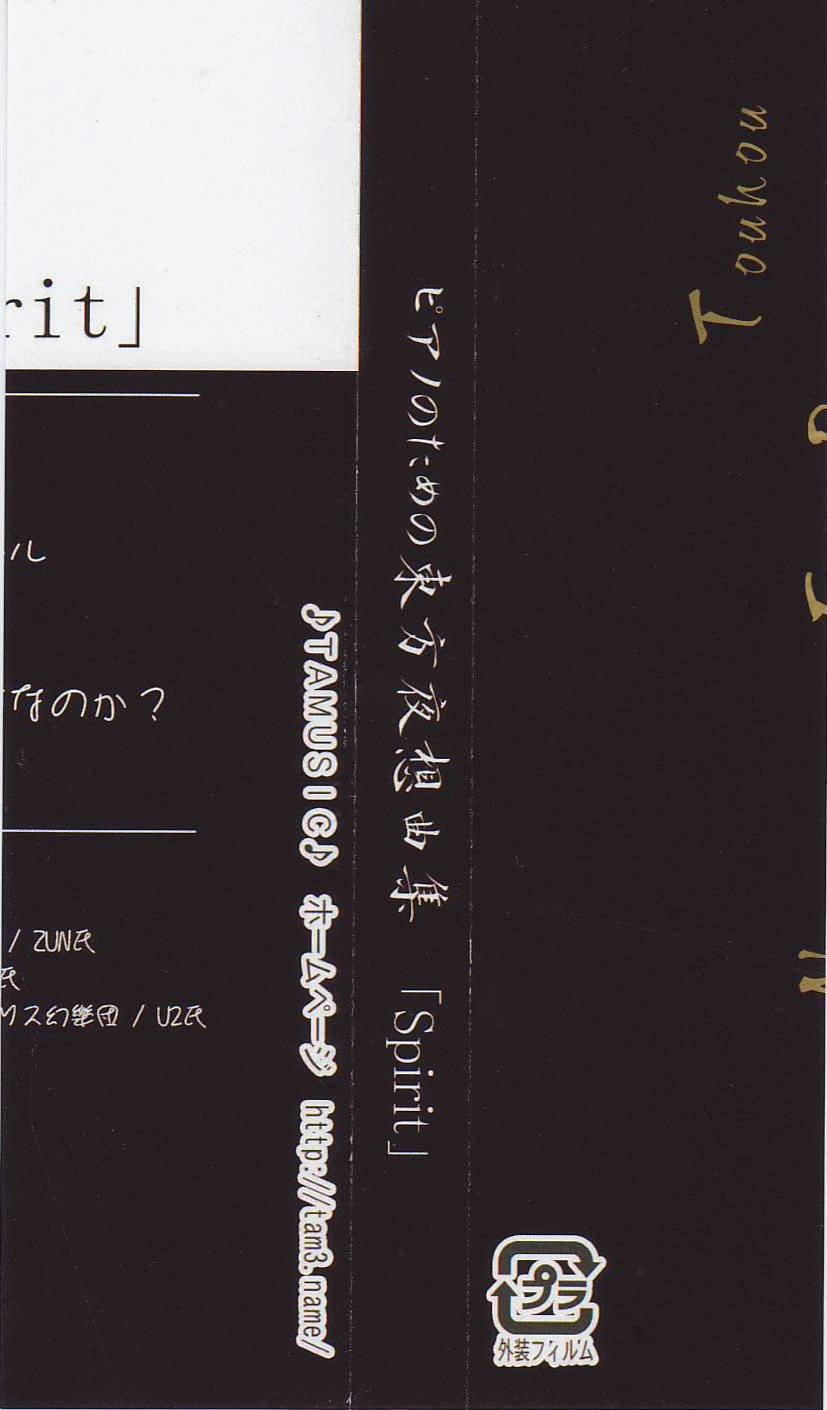 rit」
ル
なのか？
/ ZUN氏
氏
リス幻樂団 / U2氏
♪TAMUSIC♪ ホームページ http://tam3.name/
ピアノのための東方夜想曲集 「Spirit」
Touhou
プラ
外装フィルム